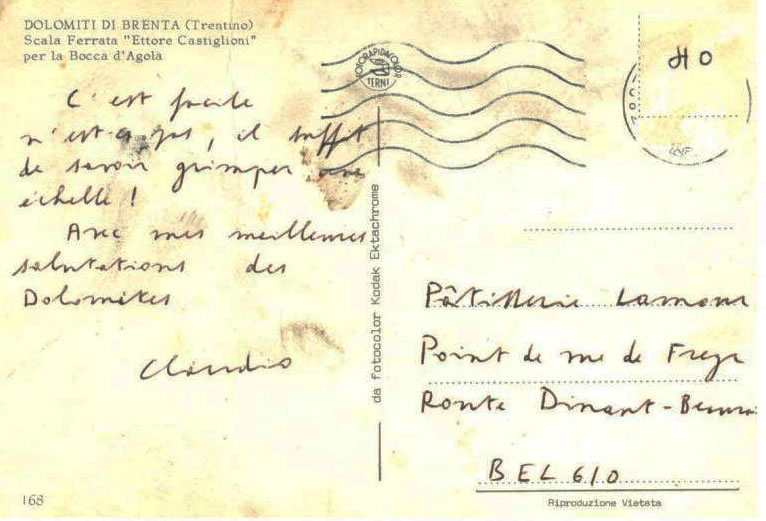 DOLOMITI DI BRENTA (Trentino)
Scala Ferrata "Ettore Castiglioni"
per la Bocca d'Agola
C'est facile
n'est-ce pas, il suffit
de savoir grimper une
échelle !
Avec mes meilleures
salutations des
Dolomites
Claudio
168
da fotocolor Kodak Ektachrome
FOTORAPIDACOLOR
TERNI
HO
Pâtisserie Lamour
Point de vue de Freyr
Route Dinant-
BELGIO
Riproduzione Vietata